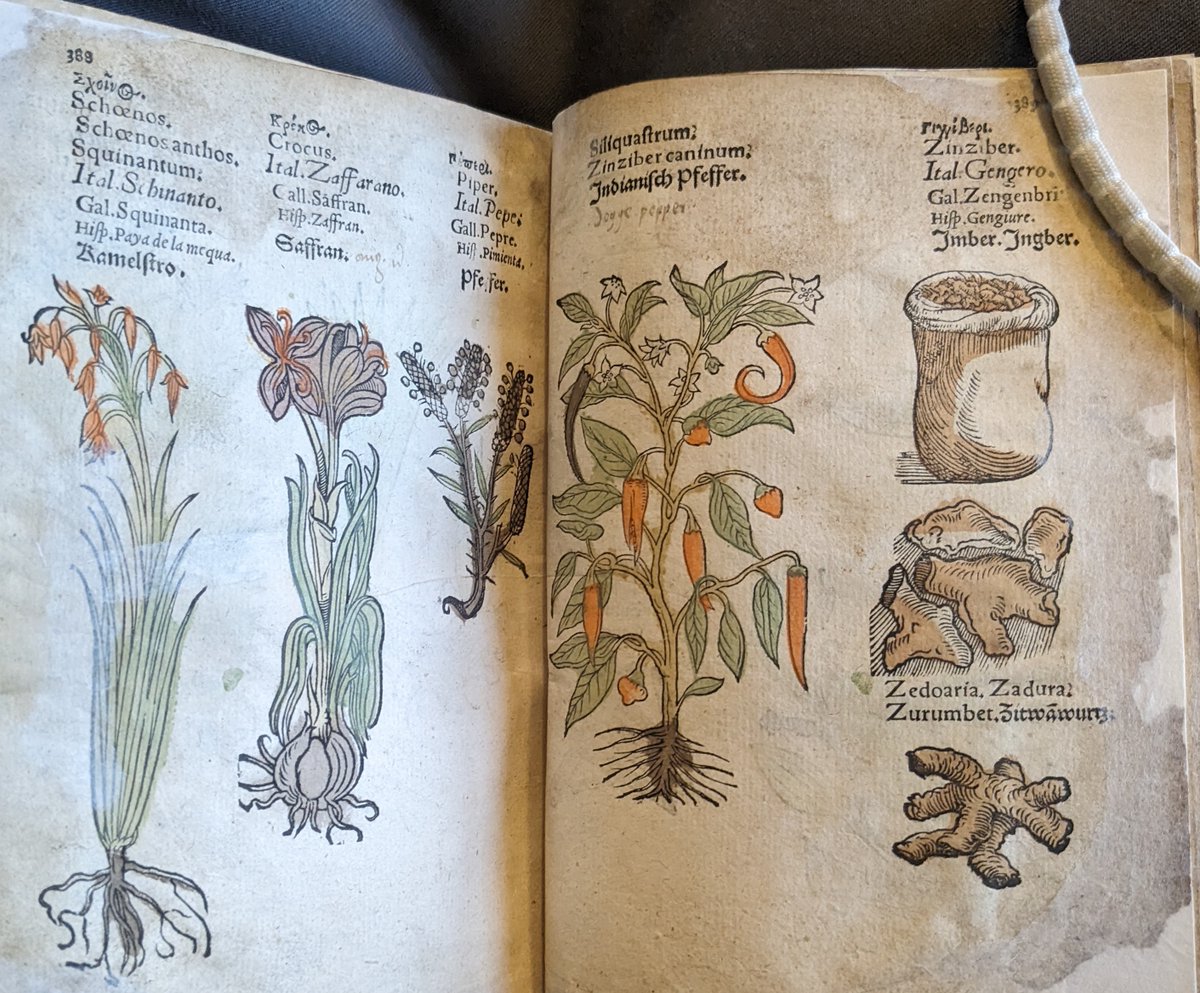 388
Σχοῖνος.
Schœnos.
Schœnosanthos.
Squinantum:
Ital. Schinanto.
Gal. Squinanta.
Hiſp. Paya de la mequa.
Kamelſtro.
Κρέκος.
Crocus.
Ital. Zaffarano.
Call. Saffran.
Hiſp. Zaffran.
Saffran.
Πέπερι.
Piper.
Ital. Pepe:
Gall. Pepre.
Hiſp. Pimienta.
Pfeffer.
Siliquaſtrum:
Zinziber caninum:
Indianiſch Pfeffer.
389
Γιγγίβερι.
Zinziber.
Ital. Gengero.
Gal. Zengenbri
Hiſp. Gengiure.
Imber. Ingber.
Zedoaria, Zadura:
Zurumbet. Zitwãwurtz.